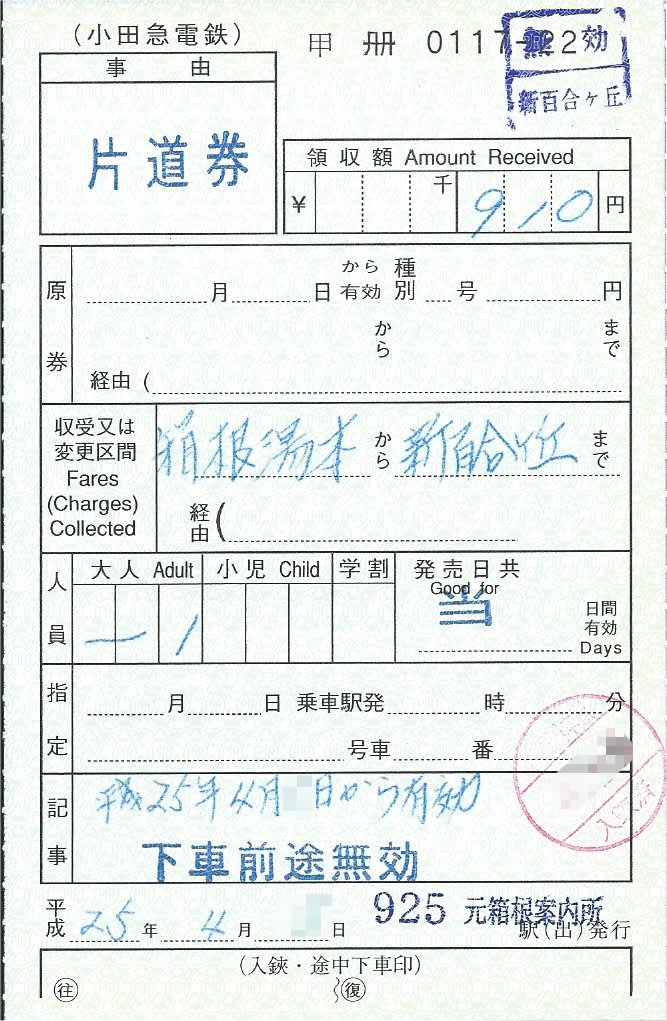 (小田急電鉄)
甲 冊 0117-22
無効
新百合ヶ丘
事由
片道券
領収額 Amount Received
¥ 千 910 円
原券
月 日 から有効 種別 号 円
から まで
経由 (
収受又は
変更区間
Fares
(Charges)
Collected
箱根湯本 から 新百合ヶ丘 まで
経由 (
人員
大人 Adult 小児 Child 学割
1
発売日共
Good for
当
日間
有効
Days
指定
月 日 乗車駅発 時 分
号車 番
記事
平成25年4月 日から有効
下車前途無効
平成 25 年 4 月 日
925 元箱根案内所
駅(出)発行
(入鋏・途中下車印)
往 復